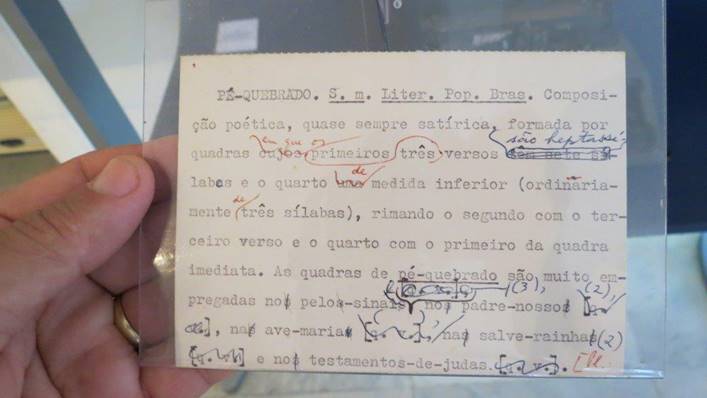 PÉ-QUEBRADO. S. m. Liter. Pop. Bras. Composi-
ção poética, quase sempre satírica, formada por
em que os são heptassí-
quadras cujos primeiros três versos têm sete sí
de
labas e o quarto uma medida inferior (ordinària-
de
mente três sílabas), rimando o segundo com o ter-
ceiro verso e o quarto com o primeiro da quadra
imediata. As quadras de pé-quebrado são muito em-
(3), (2),
pregadas nos pelos-sinais nos padre-nossos
nas ave-marias [q. v.], nas salve-rainhas (2)
[q. v.] e nos testamentos-de-judas. [q. v.].